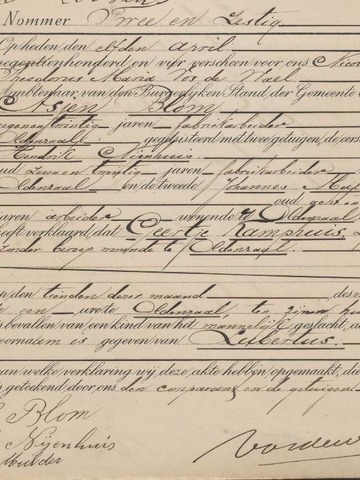 Nommer Twee en Zestig
Op heden den elfden April
negentienhonderd en vijf verscheen voor ons
Theodorus Maria Vos de Wael
Ambtenaar van den Burgerlijken Stand, der Gemeente
Asjen Blom
negenentwintig jaren fabriekarbeider
Oldenzaal geassisteerd met twee getuigen, de eerste
Hendrik Nijenhuis
oud jaren fabriekarbeider
Oldenzaal en de tweede Johannes
oud
jaren arbeider wonende te Oldenzaal
heeft verklaard, dat Geertje Kamphuis
zonder beroep wonende te Oldenzaal
den tienden dezer maand dezes
een ure te Oldenzaal, te zijnen
bevallen van een kind van het mannelijk geslacht,
voornaam is gegeven van Lubertus
Van welke verklaring wij deze akte hebben opgemaakt, die
geteekend door ons den comparant en de getuigen
Blom
Nijenhuis
Mulder